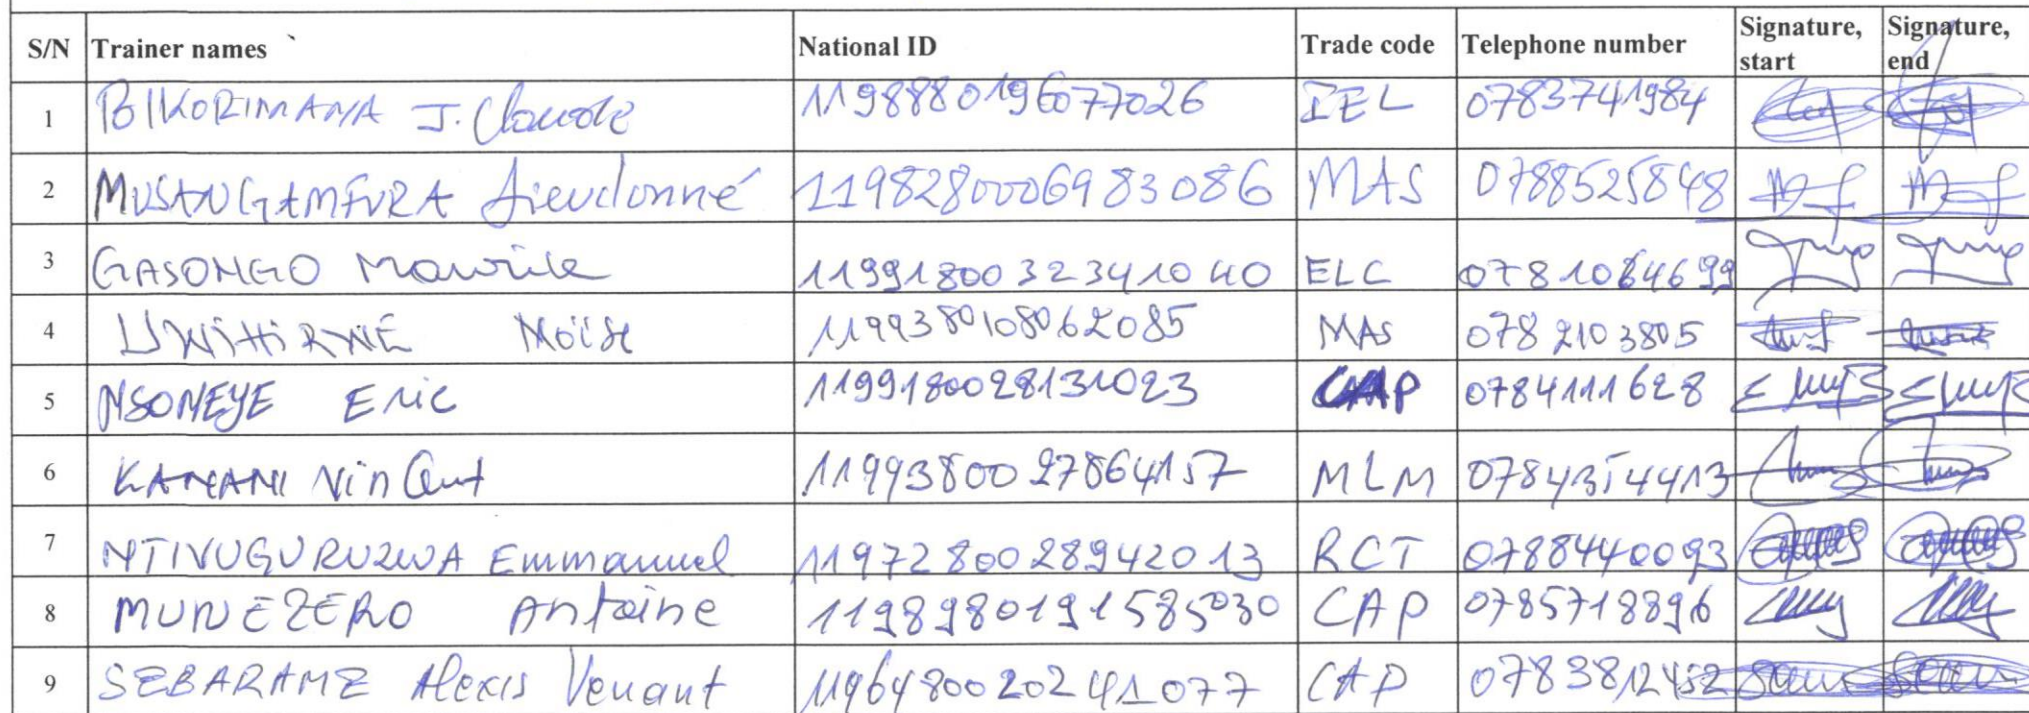 S/N Trainer names National ID Trade code Telephone number Signature, start Signature, end
1 BIKORIMANA J. Claude 1198880196077026 IEL 0783741984
2 MUSANGAMFURA Dieudonné 1198280006983086 MAS 0788525848
3 GASONGO Maurice 1199180032341040 ELC 0781064699
4 UWIHIRWE Moïse 1199380108062085 MAS 0782103805
5 NSONEYE Eric 1199180028131023 CAP 0784111628
6 KANANI Vincent 1199380027864157 MLM 0784354413
7 NTIVUGURUZWA Emmanuel 1197280028942013 RCT 0788440093
8 MUNEZERO Antoine 1198980191585030 CAP 0785718896
9 SEBARAME Alexis Venant 1196480020241077 CAP 0783812452